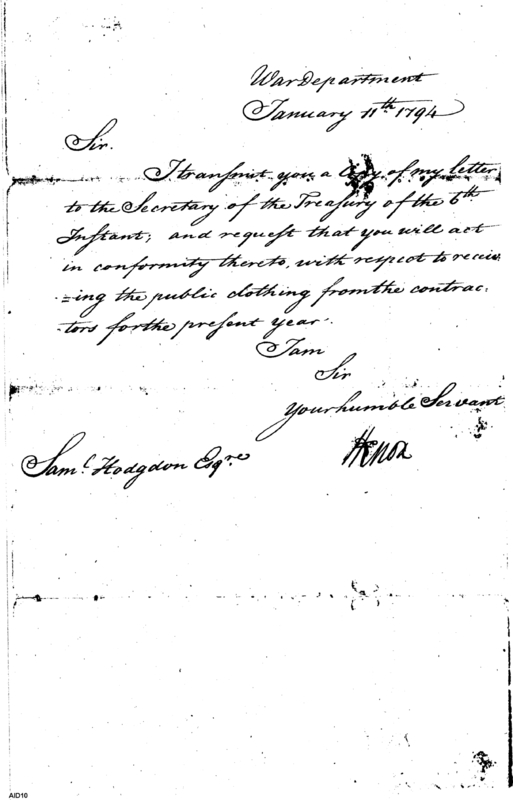 War Department
January 11th 1794
Sir.
I transmit you a Copy of my letter
to the Secretary of the Treasury of the 6th
Instant; and request that you will act
in conformity thereto, with respect to receiv
=ing the public clothing from the contrac,
tors for the present year.
I am
Sir
Your humble Servant
HKnox
Saml. Hodgdon Esqre.
AID10